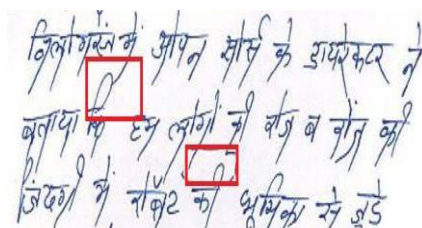 में ओपन सोर्स के डायरेक्टर ने
बताया कि हम लोगों की रोज ब रोज की
जिंदगी में रोबोट की भूमिका से जुडे